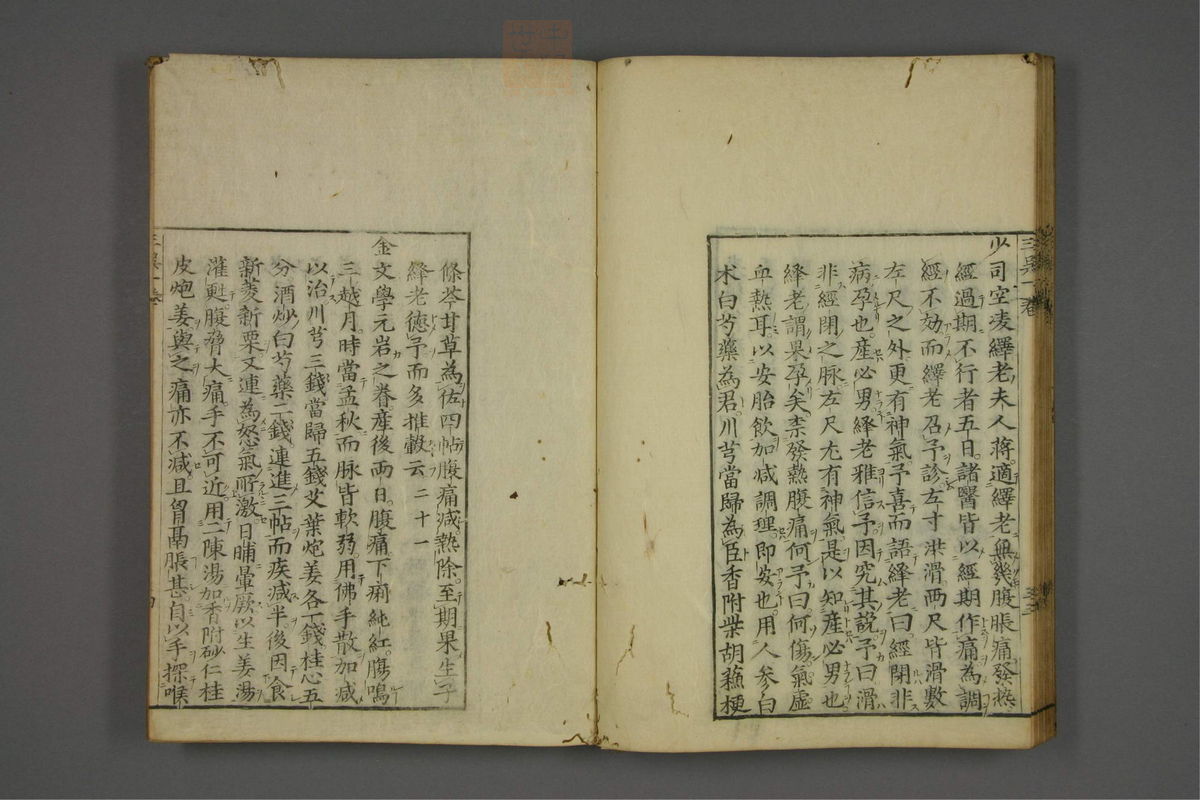 少司空凌繹老夫人蔣適繹老無幾腹脹痛發熱
經過期不行者五日諸醫皆以經期作痛為調
經不効而繹老召予診左寸洪滑兩尺皆滑數
左尺之外更有神氣予喜而語繹老曰經閉非
病孕也產必男繹老雅信予因究其說予曰滑
非經閉之脉左尺尤有神氣是以知產必男也
繹老謂果孕矣柰發熱腹痛何予曰何傷氣虛
血熱耳以安胎飲加减調理即安也用人參白
术白芍藥為君川芎當歸為臣香附柴胡蘓梗
條芩甘草為佐四帖腹痛减熱除至期果生子
繹老德予而多推轂云二十一
金文學元岩之眷產後兩日腹痛下痢純紅腸鳴
三越月時當孟秋而脉皆軟弱用佛手散加减
以治川芎三錢當歸五錢艾葉炮姜各一錢桂心五
分酒炒白芍藥二錢連進三帖而疾减半後因食
新菱新栗又連為怒氣所激日晡暈厥以生姜湯
灌甦腹脅大痛手不可近用二陳湯加香附砂仁桂
皮炮姜與之痛亦不减且胃鬲脹甚自以手探喉